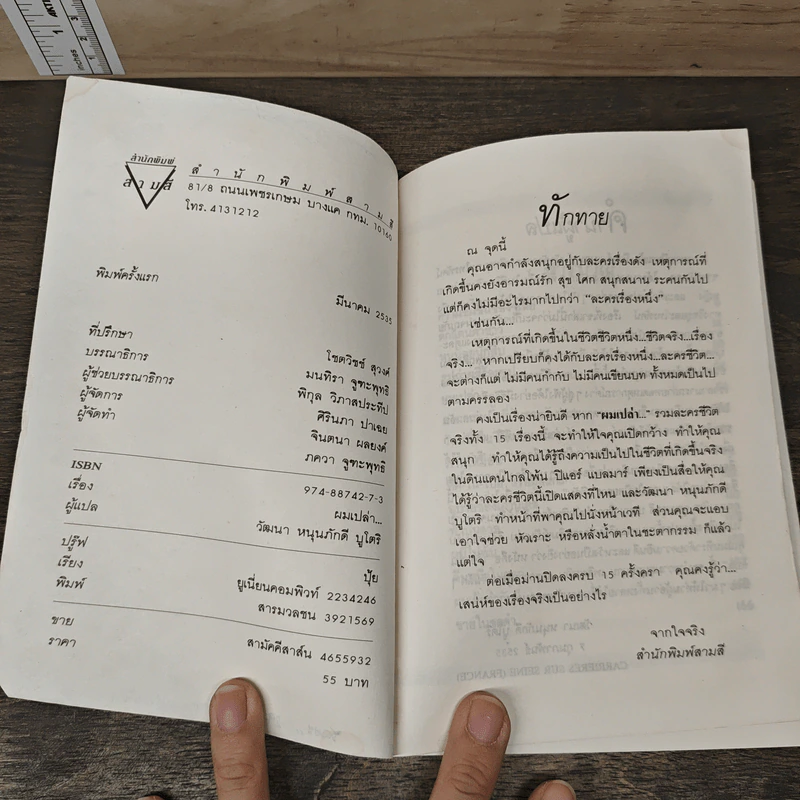 สำนักพิมพ์
สามสี
สำนักพิมพ์สามสี
81/8 ถนนเพชรเกษม บางแค กทม. 10160
โทร. 4131212
พิมพ์ครั้งแรก
มีนาคม 2535
ที่ปรึกษา
โชตวิชช์ สุวงศ์
บรรณาธิการ
มนทิรา จูฑะพุทธิ
ผู้ช่วยบรรณาธิการ
พิกุล วิภาสประทีป
ผู้จัดการ
ศิรินภา ปาเฉย
ผู้จัดทำ
จินตนา ผลยงค์
ภควา จูฑะพุทธิ
ISBN
974-88742-7-3
เรื่อง
ผมเปล่า...
ผู้แปล
วัฒนา หนุนภักดี บูโตริ
ปรู๊ฟ
ปุ้ย
เรียง
ยูเนี่ยนคอมพิวท์ 2234246
พิมพ์
สารมวลชน 3921569
ขาย
สามัคคีสาส์น 4655932
ราคา
55 บาท
ทักทาย
ณ จุดนี้
คุณอาจกำลังสนุกอยู่กับละครเรื่องดัง เหตุการณ์ที่
เกิดขึ้นคงยังอารมณ์รัก สุข โศก สนุกสนาน ระคนกันไป
แต่ก็คงไม่มีอะไรมากไปกว่า "ละครเรื่องหนึ่ง"
เช่นกัน...
เหตุการณ์ที่เกิดขึ้นในชีวิตชีวิตหนึ่ง...ชีวิตจริง...เรื่อง
จริง... หากเปรียบก็คงได้กับละครเรื่องหนึ่ง...ละครชีวิต...
จะต่างก็แต่ ไม่มีคนกำกับ ไม่มีคนเขียนบท ทั้งหมดเป็นไป
ตามครรลอง
คงเป็นเรื่องน่ายินดี หาก "ผมเปล่า..." รวมละครชีวิต
จริงทั้ง 15 เรื่องนี้ จะทำให้ใจคุณเปิดกว้าง ทำให้คุณ
สนุก ทำให้คุณได้รู้ถึงความเป็นไปในชีวิตที่เกิดขึ้นจริง
ในดินแดนไกลโพ้น ปิแอร์ แบลมาร์ เพียงเป็นสื่อให้คุณ
ได้รู้ว่าละครชีวิตนี้เปิดแสดงที่ไหน และวัฒนา หนุนภักดี
บูโตริ ทำหน้าที่พาคุณไปนั่งหน้าเวที ส่วนคุณจะแอบ
เอาใจช่วย หัวเราะ หรือหลั่งน้ำตาในชะตากรรม ก็แล้ว
แต่ใจ
ต่อเมื่อม่านปิดลงครบ 15 ครั้งครา คุณคงรู้ว่า...
เสน่ห์ของเรื่องจริงเป็นอย่างไร
จากใจจริง
สำนักพิมพ์สามสี
CARRIERES SUR SEINE (FRANCE)
inches
1
2
3